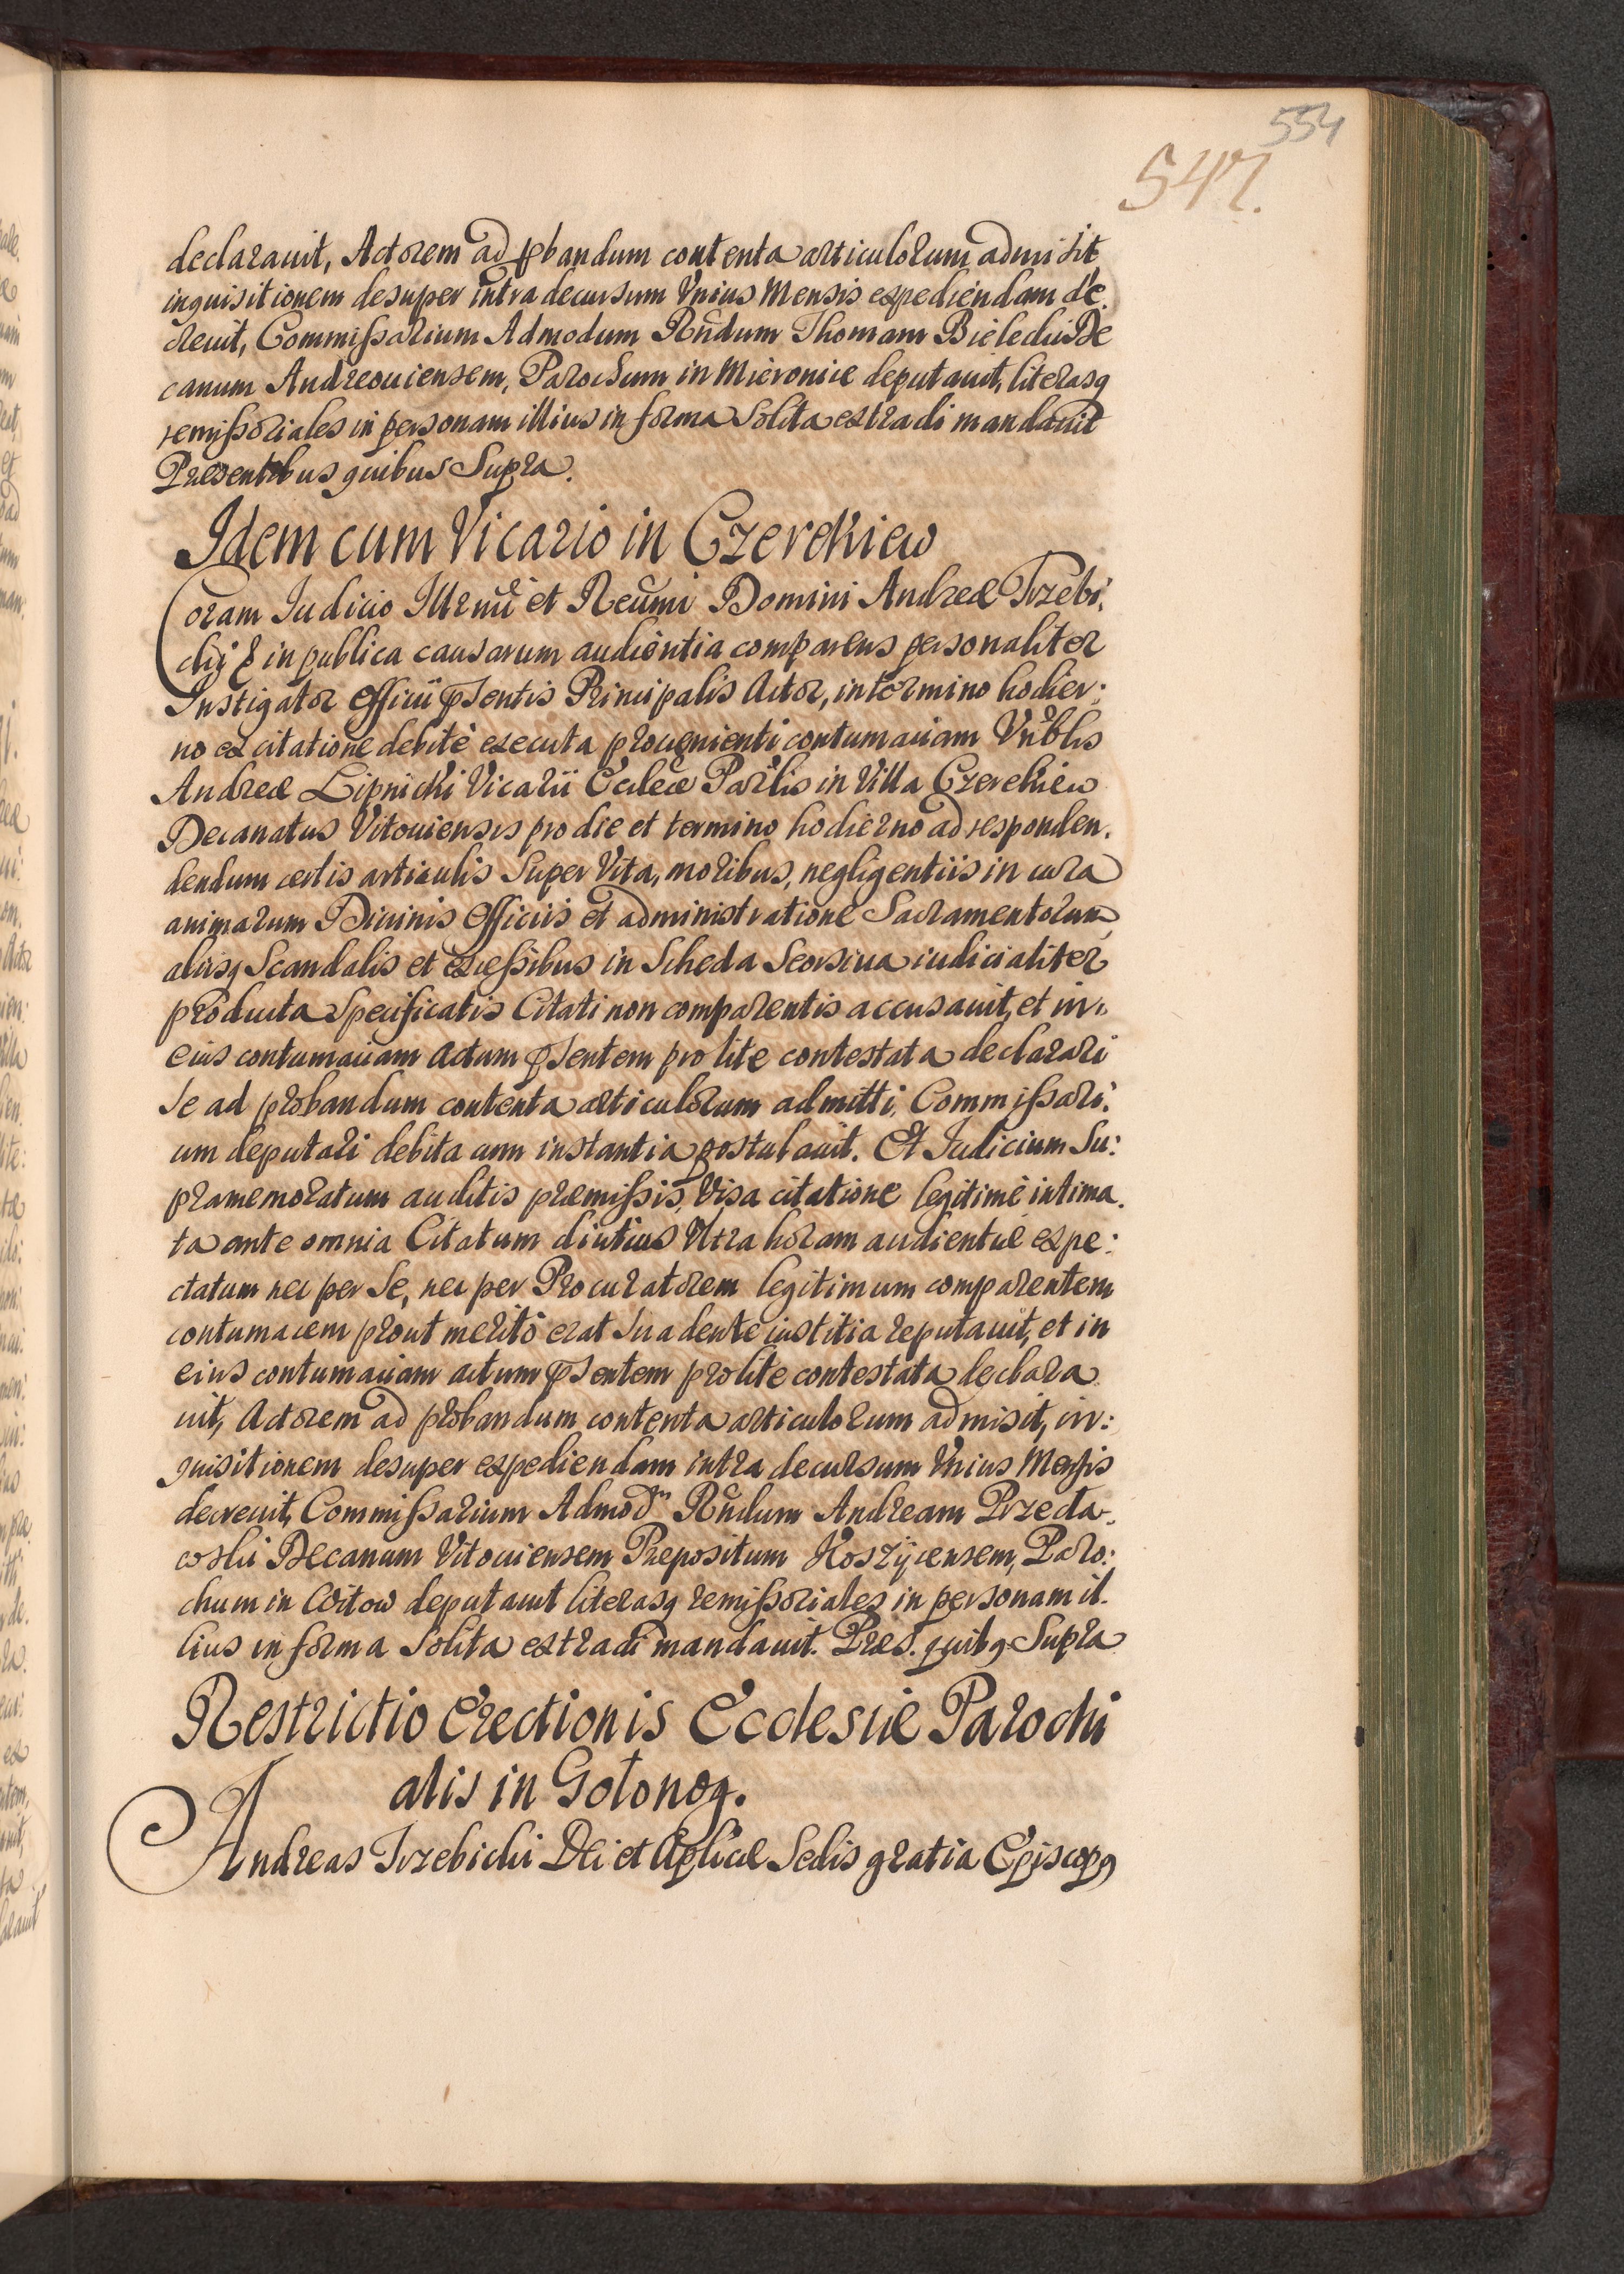 554
547.
declarauit, Actorem ad pbandum contenta articulorum admisit
inquisitionem desuper intra decursum Vnius Mensis expediendam de.
creuit, Commissarium Admodum Rndum Thomam Bielecki De
canum Andreouiensem, Parochum in Mieronice deputauit, literasq
remissoriales in personam illius in forma Solita extradi mandauit
Præsentibus quibus Supra.
Idem cum Vicario in Czerekiew
Coram Iudicio Illrmi et Reumi Domini Andreæ Trzebi.
cky & in publica causarum audientia comparens personaliter
Instigator Officii psentis Principalis Actor, in termino hodier:
no ex citatione debitè executa proueni enti contumaciam Vnblis
Andreæ Lipnicki Vicarii Eccleæ Parlis in Villa Czerekiew
Decanatus Vitouiensis pro die et termino hodierno ad responden.
dendum certis articulis Super Vita, moribus, negligentiis in cura
animarum Diuinis Officiis et administratione Sacramentorum
aliisq Scandalis et excessibus in Scheda Seorsiua iudicialiter
producta Specificatis Citati non comparentis accusauit, et in
eius contumaciam actum psentem pro lite contestata declarari
se ad probandum contenta articulorum admitti, Commissari:
um deputari debita cum instantia postulauit. Et Iudicium Su:
pramemoratum auditis præmissis, Visa citatione legitimè intima.
ta ante omnia Citatum diutius Vltra horam audientiæ expe:
ctatum nec per Se, nec per Procuratorem legitimum comparentem
contumacem prout meritò erat suadente iustitia reputauit, et in
eius contumaciam actum psentem pro lite contestata declara
uit, Actorem ad probandum contenta articulorum admisit, in:
quisitionem desuper expediendam intra decursum Vnius Mensis
decreuit, Commissarium Admodm Rndum Andream Przecla.
woski Decanum Vitouiensem Præpositum Koszÿcensem, Paro:
chum in Witow deputauit literasq remissoriales in personam il.
lius in forma Solita extradi mandauit. Præs. quibq Supra
Restrictio Erectionis Ecclesiæ Parochi
alis in Gołonog.
Andreas Trzebicki Dei et Aplicæ Sedis gratia Episcopq